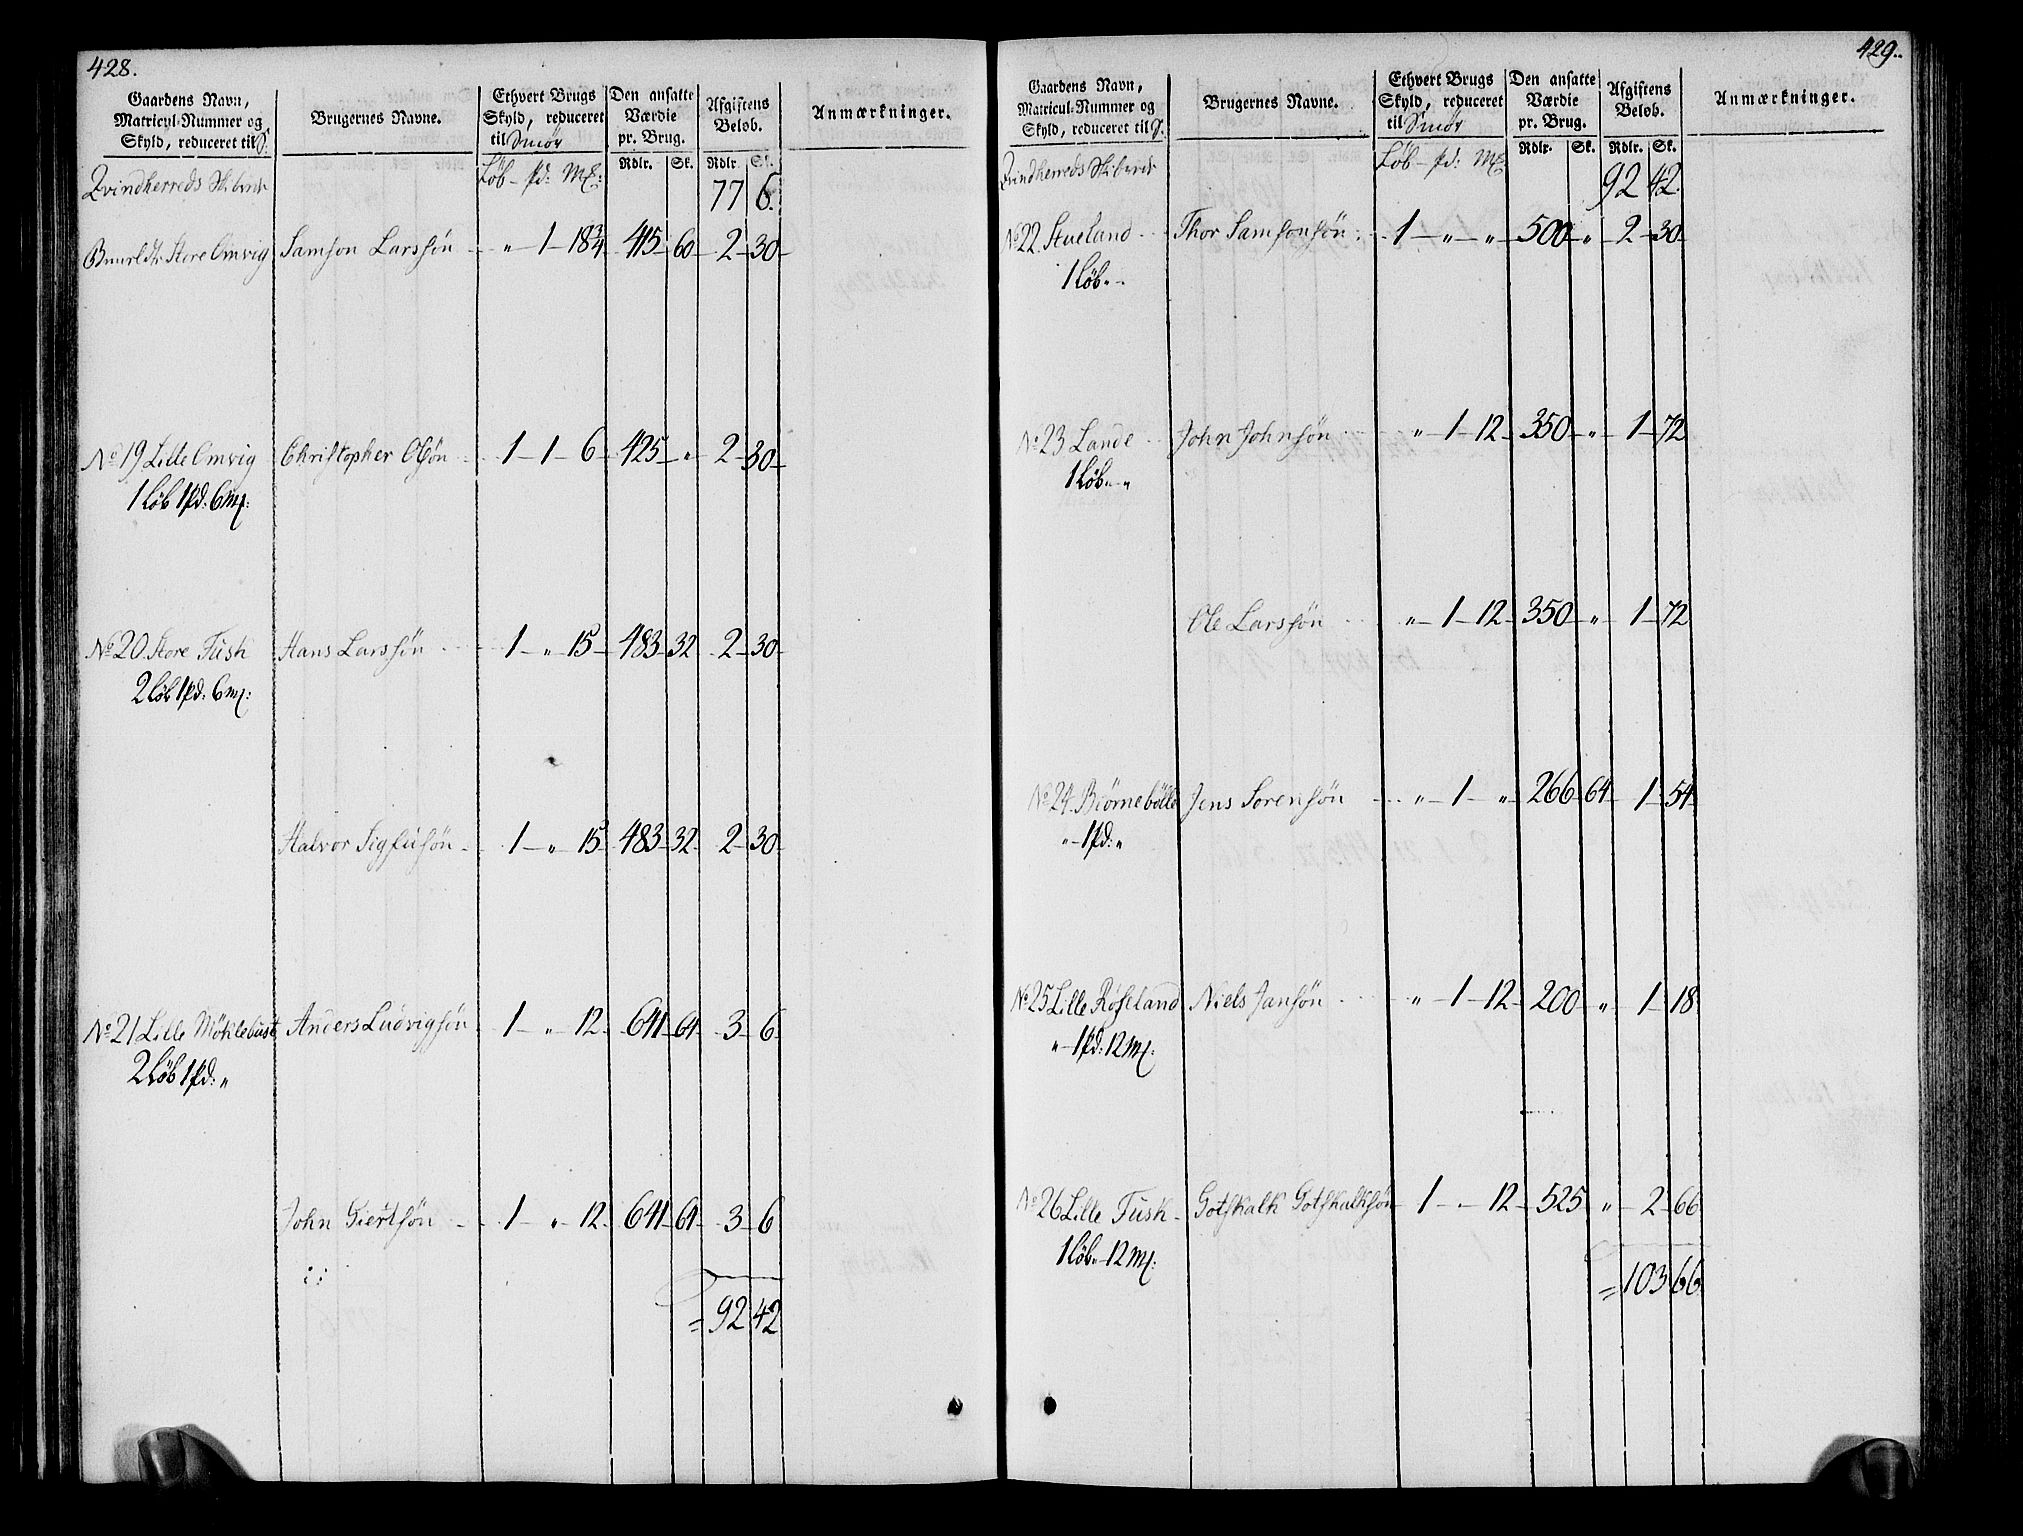 428.
Gaardens Navn, Matricul-Nummer og Skyld, reduceret til S:
Brugernes Navne.
Ethvert Brugs Skyld, reduceret til Smör
Den ansatte Værdie pr. Brug.
Afgiftens Beløb.
Anmærkninger.
Løb - pd: Mk: Rdlr. Sk. Rdlr. Sk.
Qvindherreds Skibrede 77 6.
Store Omvig Samson Larssøn " 1 - 18 3/4 415 - 60 - 2 - 30 -
No 19 Lille Omvig Christopher Olsøn 1 - 1 - 6 425 - " - 2 - 30 -
1 Løb 1 pd: 6 Mk:
No 20. Store Tush Hans Larssøn 1 - " - 15 - 483 - 32 2 - 30 -
2 Løb 1 pd: 6 Mk:
Halvor Sigfusøn 1 - " 15 - 483 - 32 2 - 30 -
No 21 Lille Möhlebust Anders Ludvigsøn 1 - " 12 - 641 - 64 - 3 - 6 -
2 Løb 1 pd: "
John Giertsøn 1 " - 12 - 641 - 64 - 3 - 6
= 92 42
429.
Gaardens Navn, Matricul-Nummer og Skyld, reduceret til S.
Brugernes Navne.
Ethvert Brugs Skyld, reduceret til Smör
Den ansatte Værdie pr. Brug.
Afgiftens Beløb.
Anmærkninger.
Løb - pd: Mk Rdlr. Sk. Rdlr. Sk.
Qvindherreds Skibrede 92 42.
No 22. Stueland Thor Samsonsøn 1 - " - " - 500 - " - 2 - 30 -
1 Løb " -
No 23 Lande John Johnsøn " - 1 - 12 - 350 - " - 1 - 72
1 Løb " "
Ole Larssøn " - 1 - 12 - 350 - " - 1 - 72
No 24. Biörnebölle Jens Sørensøn " - 1 - " - 266 64 - 1 - 54
" - 1 pd: "
No 25 Lille Röseland Niels Jansøn " - 1 - 12 - 200 - " - 1 - 18
" - 1 pd: 12 Mk:
No 26 Lille Tush - Gotskalk Gotskalksøn - 1 - - 12 - 525 " - 2 - 66
1 Løb " - 12 Mk:
= 103 66